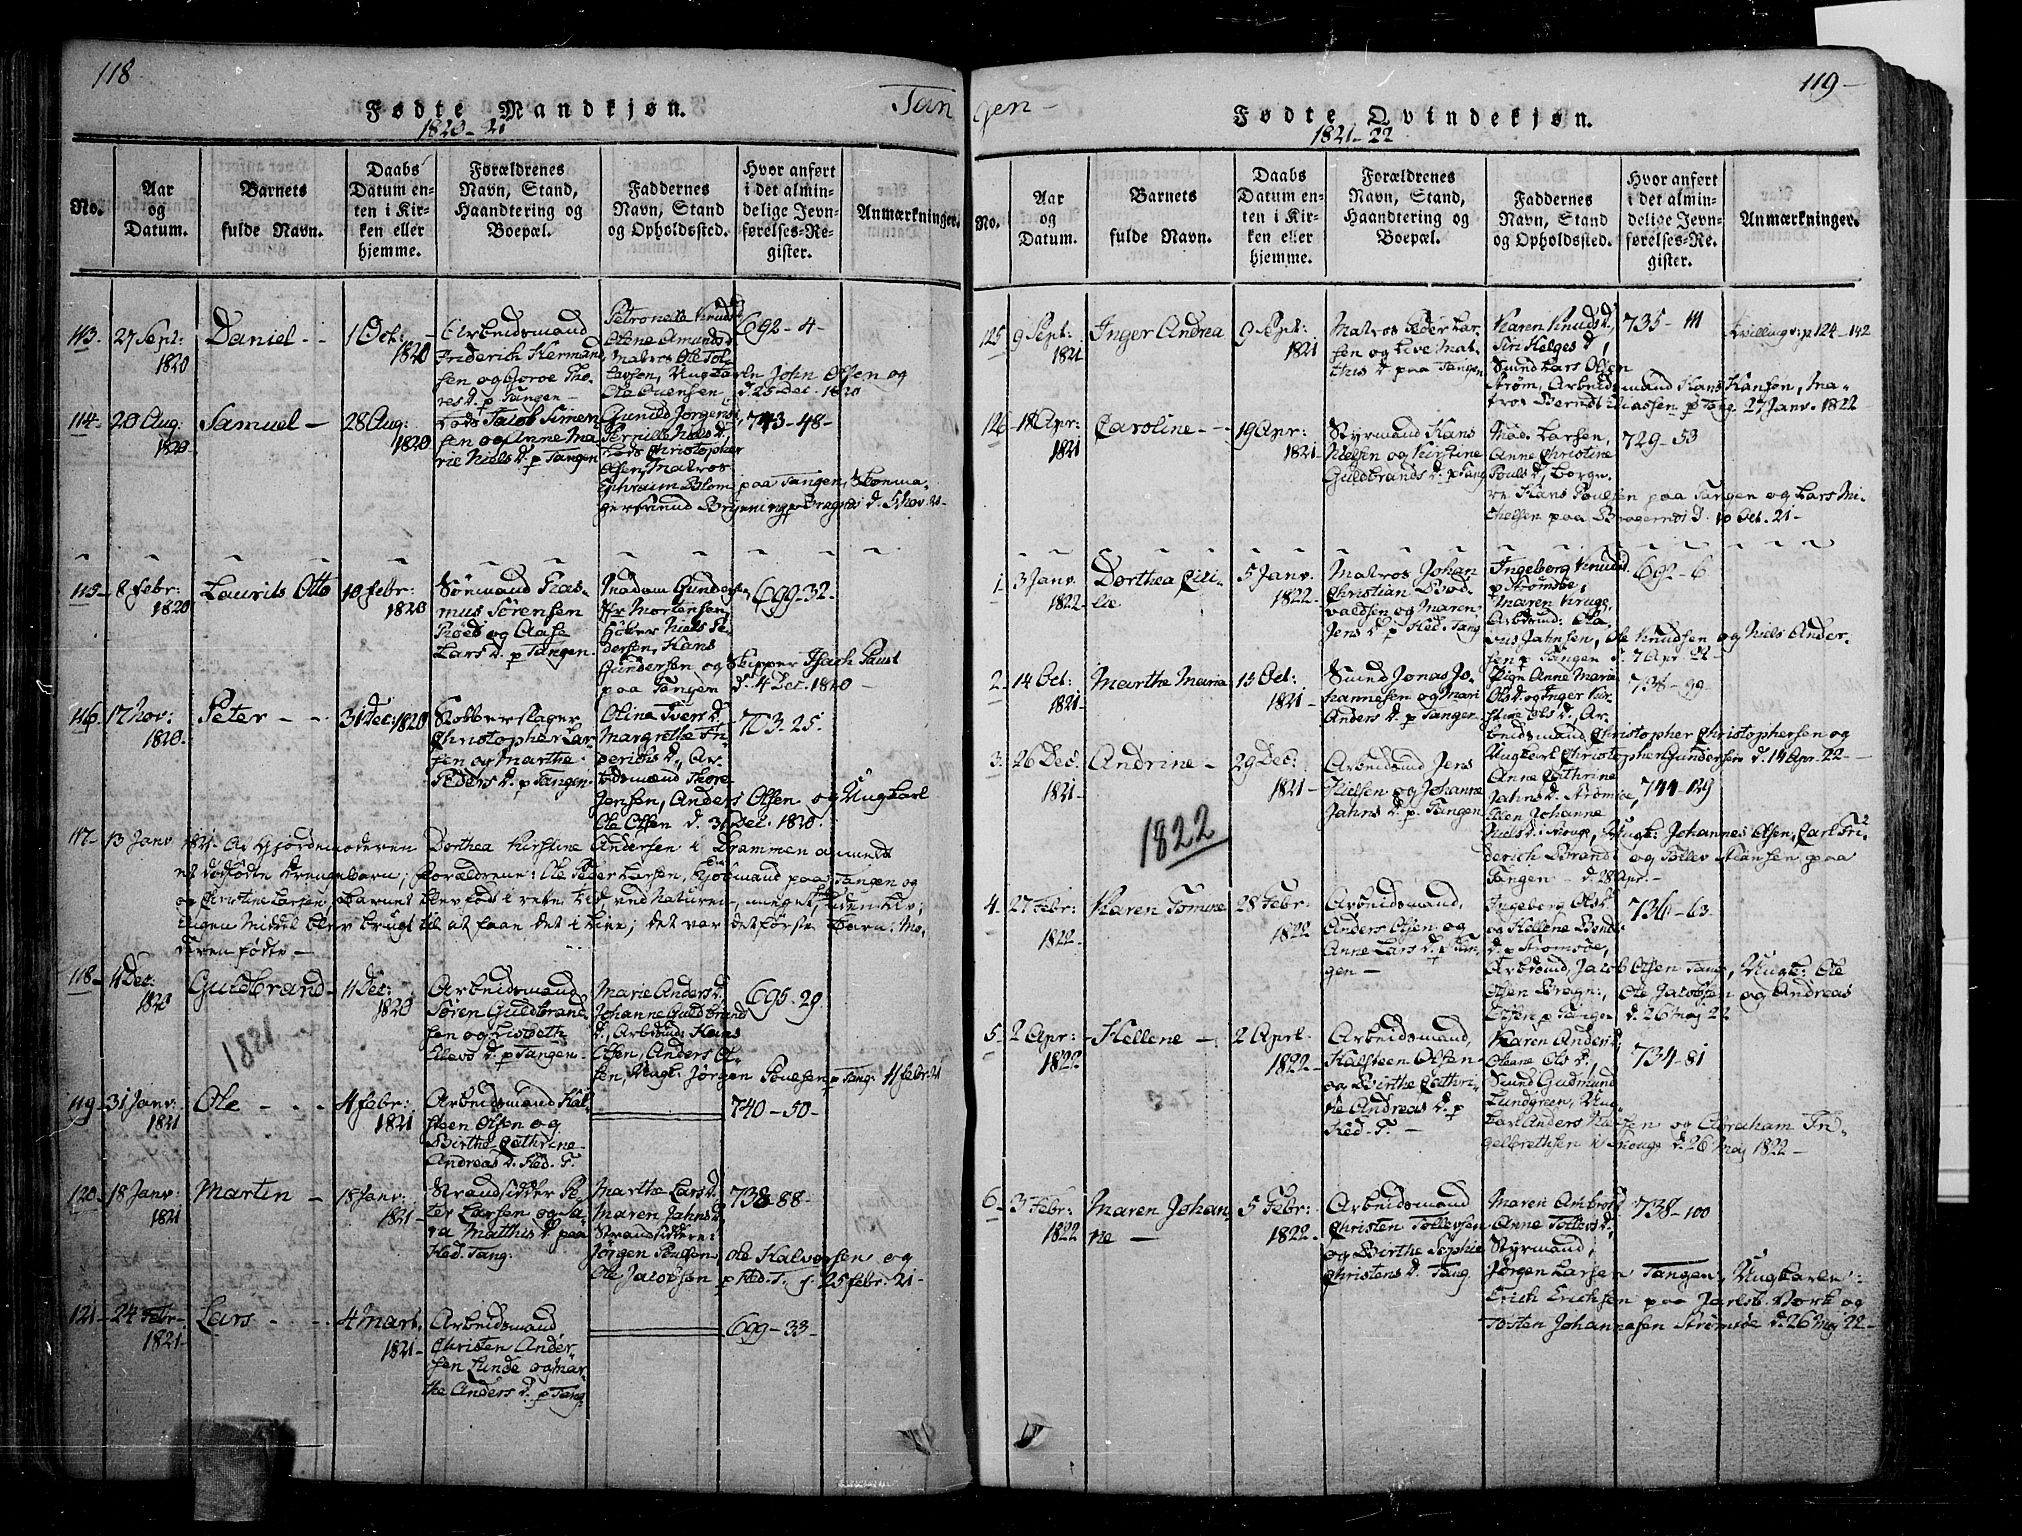 118
Tan
Fødte Mandkjøn.
1820-21
No.
Aar og Datum.
Barnets fulde Navn.
Daabs Datum enten i Kirken eller hjemme.
Forældrenes Navn, Stand, Haandtering og Boepæl.
Faddernes Navn, Stand og Opholdssted.
Hvor anført i det almindelige Jevnførelses-Register.
Anmærkninger.
113. 27 Sept: 1820
Daniel
1 Oct: 1820
Arbeidsmand
Friderich Herman
sen og Goroe Tho-
res D. p Tangen
Petronelle Knuds D.
Olene Amunds D.
Matros Ole Tol-
lavsen, Ungkarle John Olsen og
Ole Evensen d. 26 Dec. 1820
692-4-
114. 20 Aug: 1820
Samuel
28 Aug: 1820
Lods Jacob Simen
sen og Anne Ma-
rie Niels D. p Tangen
Gunild Jørgens
Pernille Niels D.
Lods Christopher
Olsen, Matros
Ephraim Blom paa Tangen,
Brynning p Bragnæs d. 5 Nov. 20-
743-48-
115. 8 Febr: 1820
Laurits Otto
10 Febr: 1820
Sømand Ras-
mus Sørensen
Røed og Aase
Lars D. p Tangen
Madam Gundersen
Mortensen
Høker Niels Pe-
dersen, Hans
Gundersen og Skipper Isach Paust
paa Tangen d. 4 Dec. 1820-
699-32-
116. 17 Nov: 1820.
Peter
31 Dec: 1820
Kobberslager
Christopher Lar-
sen og Marthe
Peders D. p Tangen
Oline Ivers D.
Margrethe Fri-
derichs D., Ar-
beidsmand Thore
Jensen, Anders Olsen og Ungkarl
Ole Olsen d. 31 Dec. 1820.
703-25-
117. 13 Janv 1821. Af Gjordemoderen Dorthea Kirstine Andersen i Drammen anmeldt
et dødfødte Drengebarn; Forældrene: Ole Peder Larsen, paa Tangen og
og Christine Larsen, Barnet blev fød i rette tid ved Naturen, uden Liv;
ingen Middel blev brugt til at faae det i Live; det var det første Barn Mo-
deren fødte -
118. 4 Dec: 1820
Guldbrand
11 Dec: 1820
Arbeidsmand
Søren Guldbrand
sen og Lisbeth
Ellevs D. p Tangen
Marie Anders D.
Johanne Guldbrand
D., Arbdmd: Hans
Olsen, Anders Ol-
sen, Ungk: Jørgen Povelsen p Tang. 11 Febr. 21
695-29-
1821
119 31 Janv: 1821
Ole
4 Febr: 1821
Arbeidsmand Hal-
steen Olsen og
Birthe Cathrine
Andreas D. Hed. T.
740-50-
120 18 Janv: 1821
Martin
18 Janv: 1821
Strandsidder Pe-
ter Larsen og Sa-
ra Matthis D. paa
Hed. Tang:
Marthe Lars D.
Maren Jahns D.
Strandsiddere:
Jørgen Poulsen, Ole Halvorsen og
Ole Jacobsen p Hed. T. f. 25 Febr. 21-
738-88-
121. 24 Febr. 1821
Lars
4 Mart. 1821
Arbeidsmand
Christen Ander-
sen Lunde og Mar-
the Anders D. p Tang.
699-33-
119
gen
Fødte Qvindekjøn.
1821-22
No.
Aar og Datum.
Barnets fulde Navn.
Daabs Datum enten i Kirken eller hjemme.
Forældrenes Navn, Stand, Haandtering og Boepæl.
Faddernes Navn, Stand og Opholdssted.
Hvor anført i det almindelige Jevnførelses-Re. gister.
Anmærkninger.
125 9 Sept: 1821
Inger Andrea
9 Sept: 1821
Matros Peder Lar-
sen og Live Mat-
this D. paa Tangen
Karen Knuds D.
Siri Helges D,
Svend Lars Olsen
Strøm, Arbeidsmand Hans Hansen, Ma-
tros Berndt Eliassen p Tang. 27 Janv. 1822-
735-111
Tvilling v: p 124-142
126 18 Apr: 1821
Caroline
19 Apr: 1821
Styrmand Hans
Nielsen og Kirstine
Guldbrands D. p Tang
Mad. Larsen,
Anne Christine
Pouls D., Borge-
re Hans Poulsen paa Tangen og Lars Mi-
chelsen paa Bragernes d. 10 Oct. 21-
729-53
1. 3 Janv. 1822
Dorthea Cicilie
5 Janv. 1822
Matros Johan
Christian Bod-
valdsen og Maren
Jens D. p Hed. Tang
Ingeborg Knuds D.
p Strømsøe,
Maren Kruge,
Arbdmd: Ola-
vus Jahnsen, Ole Knudsen og Niels Ander-
sen p Tangen d. 7 Apr. 22-
692-6
2. 14 Oct: 1821
Marthe Maria
15 Oct: 1821
Svend Jonas Jo-
hannesen og Mari
Anders D. p Tangen
Pige Anne Marie
Ols D. og Inger Kir-
stine Ols D., Ar-
beidsmand Christopher Christophersen og
Ungkarl Christopher Gundersen d. 14 Apr. 22-
738-99
3. 26 Dec. 1821
Andrine
29 Dec: 1821
Arbeidsmd Jens
Nielsen og Johanne
Jahns D. p. Tangen
Anne Cathrine
Jahns D. Strømsøe,
Ellen Johanne
Niels D. i Skouge, Ungk: Johannes Olsen, Carl Fri-
derich Brandt og Tollev Hansen paa
Tangen - d. 28 Apr.-
744-129
1822
4. 27 Febr: 1822
Karen Tomine
28 Febr 1822
Arbeidsmand,
Anders Olsen og
Anne Lars D. p Tan-
gen
Ingeborg Ols D.
og Hellene Bends
D. p Strømsøe,
Arbdsmd, Jacob Olsen Tang, Ungk: Ole
Olsen Bragn:, Ole Jacobsen og Andreas
Olsen p Tangen d. 26 Maj 22
736-63
5. 2 Apr: 1822
Hellene
2 Apr: 1822
Arbeidsmand,
Halsteen Olsen
og Birthe Cathri-
ne Andreas D. p
Hed. T. -
Karen Anders D.
Oleane Ols D.,
Svend Gudmund
Lundgreen, Ung-
karl Anders Nielsen og Abraham In-
gelbrethsen i Skouge d. 26 Maj 1822-
734-81
6 3 Febr: 1822
Maren Johanne
5 Febr: 1822
Arbeidsmand
Christen Tollevsen
og Birthe Sophie
Christens D. Tang
Maren Ambros D.
Anne Tollevs D.
Styrmand,
Jørgen Larsen Tangen, Ungkarle:
Erich Erichsen paa Jarlsb. Værk og
Tosten Johannesen Strømsøe d. 26 Maj 22-
738-100